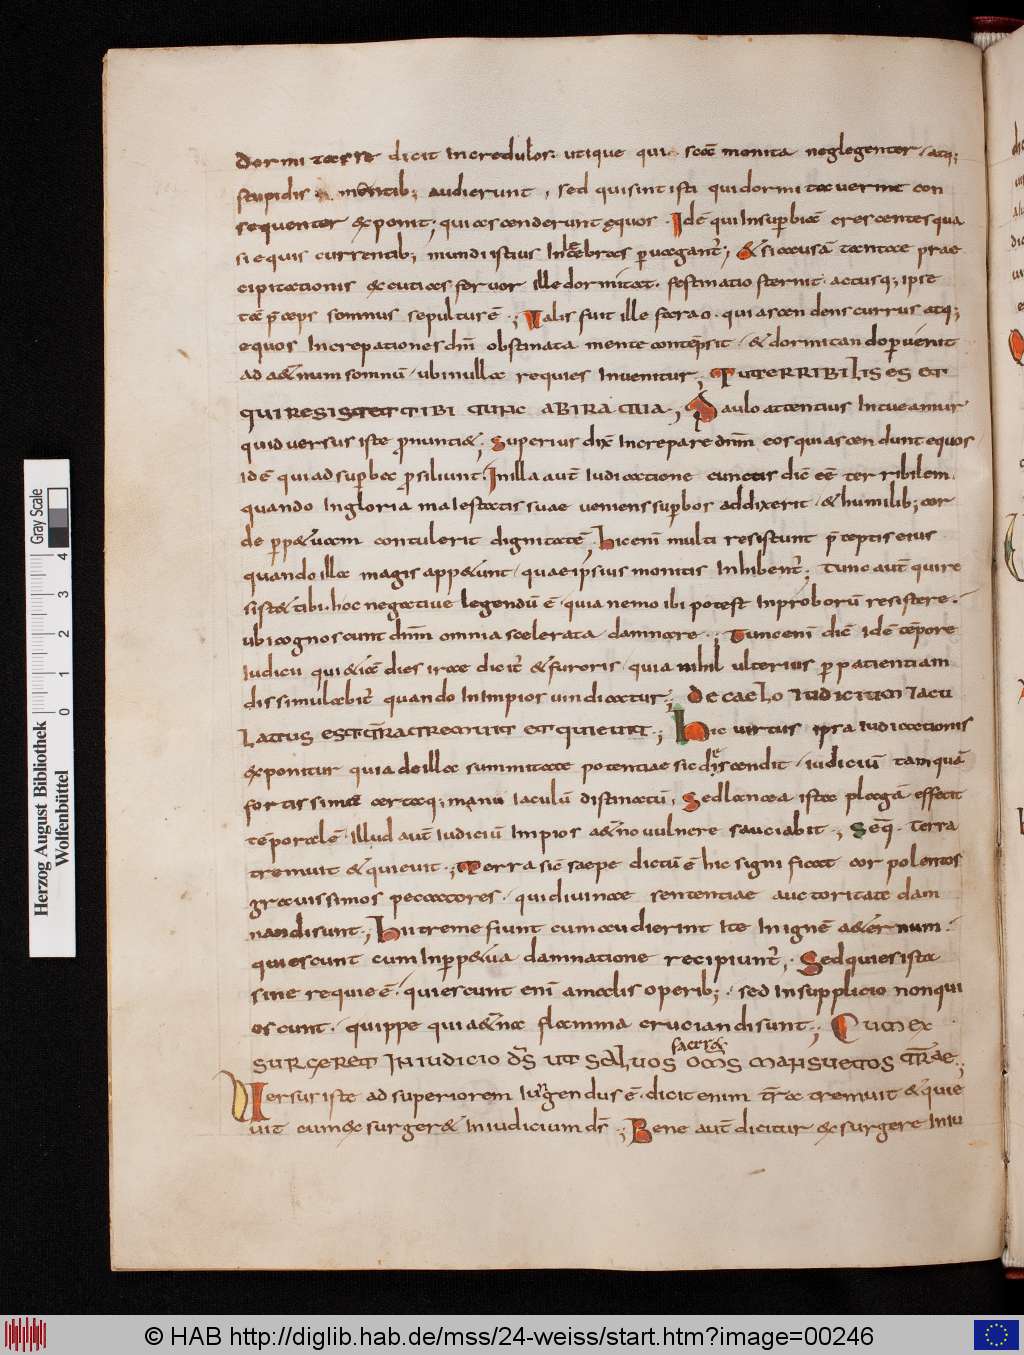 dormitasse dicit Incredulos. utique qui scae monita neglegenter, atq;
stupidis mentib; audierunt, sed qui sint isti qui dormitaverint con
sequenter exponit; qui ascenderunt equos. Idē qui In supbiae crescentes qua
si equis currentib; mundi istius Inlecebras p vagant̄; & si accusā tantae prae
cipitationis & cuti as fervor ille dormitat. festinatio sternit. actusq; ipse
tā p̄ceps somnus sepulturē.; Talis fuit ille farao. qui ascendens currus atq;
equos Increpationes dn̄i obstinata mente contēpsit, & dormitando pvenit
ad a&ernum somnū, ubi nulla requies Invenitur; TU TERRIBILIS ES ET
QUI RESISTET TIBI TUNC AB IRA TUA; Paulo attentius Intueamur
quid versus iste p̄nunti&; Superius dix̄ Increpare dn̄m eos qui ascendunt equos
idē qui ad supbiā p̄siliunt. In illa aut̄ Iudicatione cunctis dic̄ eē terribilem.
quando In gloria maiestatis suae veniens supbos addixerit, & humilib; cor
de pp&uam contulerit dignitatē; hic enī multi resistunt p̄ceptis eius
quando illa magis app&unt, quae ipsius monitis Inhibent̄; Tunc aut̄ qui re
sist& tibi. hoc negative legendū ē. quia nemo ibi potest Inproborū resistere.
ubi cognoscunt dn̄m omnia scelerata damnare.; Tunc enī dic̄ Idē tēpore
Iudicii qui & iā dies irae dicit̄ & furoris, quia nihil ulterius p patientiam
dissimulabit̄ quando In Impios vindicatur; DE CAELO IUDICIUM IACU
LATUS EST T̄RA TREMUIT ET QUIEVIT.; Hic virtus ipsa Iudicationis
exponitur quia de illa summitate potentiae sic dn̄s descendit, iudiciū tamquā
fortissima certaq; manu Iaculū distinctū; Sed lancea ista plagā effecit
tēporalē. Illud aut̄ Iudiciū Impios a&erno vulnere sauciabit.; Seq̄. Terra
tremuit & quievit.; Terra sic saepe dictū ē hic significat corpolentos
gravissimos peccatores. qui divinae sententiae auctoritate dam
nandi sunt; Hi tremefiunt cum audierint Ite In ignē a&ernum.
quiescunt cum In pp&ua damnatione recipiunt̄. Sed quies ista
sine requie ē. quiescunt enī a malis operib;. sed In supplicio non qui
escunt. quippe qui a&erna flamma cruciandi sunt.; CUM EX
SURGERET IN IUDICIO D̄S UT SALVOS faceret OM̄S MANSUETOS T̄RAE.;
Versus iste ad superiorem Iungendus ē. dicit enim t̄ra tremuit & quie
vit cum exsurger& In iudicium d̄s.; Bene aut̄ dicitur exsurgere In iu
Herzog August Bibliothek
Wolfenbüttel
Gray Scale
0 1 2 3 4
© HAB http://diglib.hab.de/mss/24-weiss/start.htm?image=00246